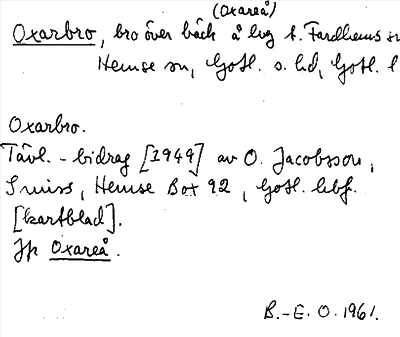 (Oxareå)
Oxarbro, bro över bäck å lvg t. Fardhems sn
Hemse sn, Gotl. s. hd, Gotl. l
Oxarbro.
Tävl.-bidrag [1949] av O. Jacobsson,
Smiss, Hemse Box 92, Gotl.
[kartblad].
Jfr Oxareå.
B.-E. O. 1961.